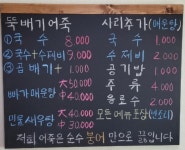 뚝배기어죽
① 국수 8.000
② 국수+수제비 9.000
③ 곰배기+ 1.000
빠가매운탕 大50.000
中40.000
민물새우탕 大40.000
中30.000
사리추가 (매운탕)
국수 1.000
수제비 2.000
공기밥 1.000
주류 4.000
음료수 2.000
저희 어죽은 순수 붕어 만으로 끓입니다